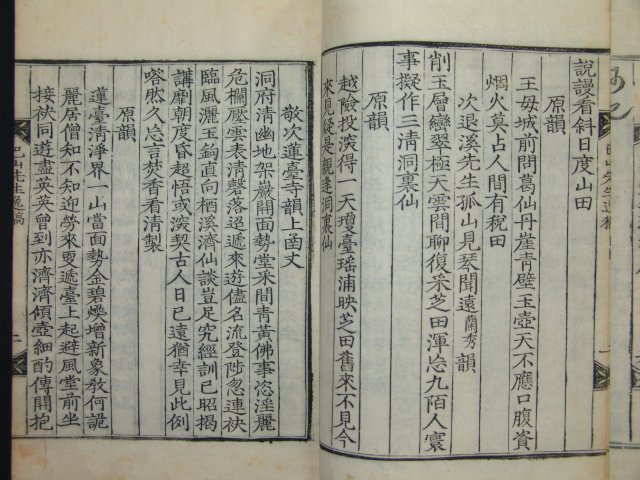 說謾看斜日度山田
原韻
王母城前問葛仙丹崖靑壁一玉壺天不應口腹資
烟火莫占人間有稅田
次退溪先生孤山見琴聞遠蘭秀韻
削玉層巒翠極天雲間聊復采芝田渾忘九陌人寰
事擬作三淸洞裏仙
原韻
越險投深得一天瓊臺瑤浦映芝田舊來不見今
來見疑是親逢洞裏仙
敬次蓮臺寺韻上函丈
洞府淸幽地架巖開面勢堂宋間靑黃佛事恣淫麗
危欄壓雲表淸磬落遐遞來遊儘名流登陟忽連袂
臨風灑玉鉤直向栖溪濟仙談豈足究經訓已昭揭
講劘朝度昏超悟或深契古人日已遠猶幸見此例
嗒然久忘言焚香看淸製
原韻
蓮臺淸淨界一山當面勢金碧煥增新象敎何詭
麗居僧知不知迎勞來更遞臺上起避風堂前坐
接袂同遊盡英英曾到亦濟濟傾壺細酌傳開抱
巴山先生逸稿
二